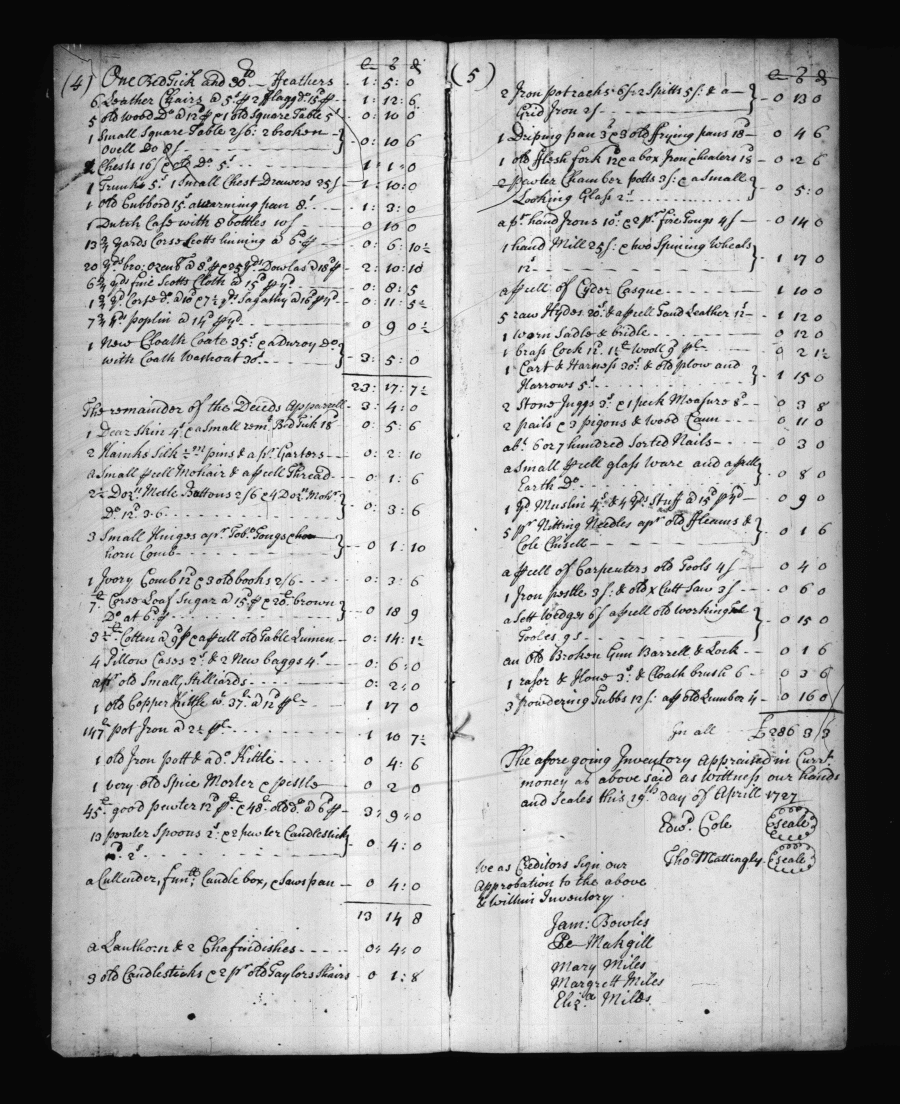 (4) One Bed Tick and 30 lb Feathers 1 : 5 : 0
6 Leather Chairs @ 5 s/p 2 fflagg do. 15 d/p 1 : 12 : 6
5 old Wood Do @ 12 d/p & 1 old Square Table 5 s 0 : 10 0
1 Small Square Table 2/6 : 2 broken
Ovell Do 8/ } 0 : 10 6
2 Chests 16/ & old Do 5 s. 1 1 : 0
1 Trunk 5 s. 1 Small Chest Drawers 25/ 1 : 10 : 0
1 old Cubbord 15 s. a warming pan 8 s. 1 : 3 : 0
1 Dutch Case with 8 bottles 10/ 0 10 0
13 3/4 yards Corse Scotts linning @ 6 d/p 0 : 6 : 10 1/2
20 yds bro: Ozenb @ 8 d/p & 25 yds Dowlas @ 18 d/p 2 : 10 : 10
6 3/4 yds fine Scotts Cloth @ 15 d p yd 0 : 8 : 5
1 3/4 yd Corse do. @ 10 & 7 1/2 yds Sagathy @ 16 d p yd 0 : 11 : 5 1/2
7 3/4 yds poplin @ 14 d p yd 0 9 0 1/2
1 New Cloath Coate 35 s. & a duroy Do
with Coath Wastcoat 30 s. } 3 : 5 : 0
23 : 17 : 7 1/2
The remainder of the Deceds Apparrell 3 : 4 : 0
1 Dear Skin 4 s. & a Small remt. Bed Tick 18 d 0 : 5 : 6
2 Hainks Silk 1/2 m pins & a pr. Garters 0 : 2 : 10
a Small pcell Mohair & a pcell Thread 0 : 1 : 6
2 1/2 Dozn. Metle Buttons 2/6 & 4 Dozn. Mohr
Do. 12 d. 3-6 } 0 : 3 : 6
3 Small Hinges a pr. Tobo. Tongs
horn Comb } 0 1 : 10
1 Ivory Comb 12 d & 3 old books 2/6 0 : 3 : 6
7 lb. Corse Loaf Sugar @ 15 d/p & 20 lb. brown
Do at 6 d/p } 0 18 9
3 1/2 lb. Cotten @ 9 d/p & a pcell old Table Linnen 0 : 14 : 1 1/2
4 Pillow Cases 2 s. & 2 New Baggs 4 s. 0 : 6 : 0
a pr old Small Stilliards 0 : 2 : 0
1 old Copper Kittle wt. 37 lb. @ 12 d p lb 1 17 0
147 lb pot Iron @ 2 1/2 p lb 1 10 7 1/2
1 old Iron Pott & a do. Kittle 0 4 : 6
1 very old Spice Morter & pestle 0 2 0
45 lb. good pewter 12 d p lb & 48 lb. old do. @ 6 d/p 3 : 9 : 0
13 pewter Spoons 2 s. & 2 pewter Candlestick
2 s. } 0 4 : 0
a Cullender, funll: Candle box, & Saws pan 0 4 : 0
13 14 8
a Lanthorn & 2 Chafindishes 0 : 4 : 0
3 old Candlesticks & 2 pr old Taylors Shairs 0 1 : 8
(5)
2 Iron potracks 6/ : 2 Spitts 5/ : & a
Grid Iron 2/ } 0 13 0
1 Driping pan 3 s & 3 old frying pans 18 d 0 4 6
1 old fflesh fork 12 d & a box Iron & heaters 18 0 2 6
2 pewter Chamber potts 3/ : & a Small
Looking Glass 2 s. } 0 5 : 0
a pr. hand Irons 10 s. & 2 pr. Fire Tongs 4/ 0 14 0
1 hand Mill 25/ : & two Spining Wheals
12 s. } 1 17 0
a pcell of Cyder Casque 1 10 0
5 raw Hydes 20 s. & a pcell Tand Leather 12 s 1 12 0
1 worn Sadle & bridle 0 12 0
1 brass Cock 12 d. 1 1/2 lb Wooll 9 d p lb. 0 2 1 1/2
1 Cart & Harness 30 s. & old plow and
Harrows 5 s. } 1 15 0
2 Stone Juggs 3 s. & 1 peck Measure 8 d 0 3 8
2 pails & 3 pigons & Wood Cann 0 11 0
abt. 6 or 7 hundred Sorted Nails 0 3 0
a Small pcell glass Ware and a pcell
Earth Do } 0 8 0
1 yd Muslin 4 s. & 4 yds Stuff @ 15 d p yd 0 9 0
5 pr Nitting Needles a pr old ffleams &
Cole Chisell } 0 1 6
a pcell of Carpenters old Tools 4/ 0 4 0
1 Iron pestle 3/ : & old x Cutt Saw 3/ 0 6 0
a Sett Wedges 6/ a pcell old working
Tooles 9 s } 0 15 0
an old Broken Gun Barrell & Lock 0 1 6
1 rasor & Hone 3 s. & Cloath brush 6 0 3 6
3 powdering Tubbs 12/ : a p old Lumber 4 0 16 0
In all £286 3/3
The afore going Inventory Appraised in Currt.
money as above said as Wittness our hands
and Seales this 19th day of Aprill 1727
Edwd. Cole Seale
Tho Mattingly Seale
We as Creditors Sign our
Approbation to the above
& within Inventory
Jam: Bowles
Pe Makgill
Mary Miles
Margrett Miles
Elizath. Miles